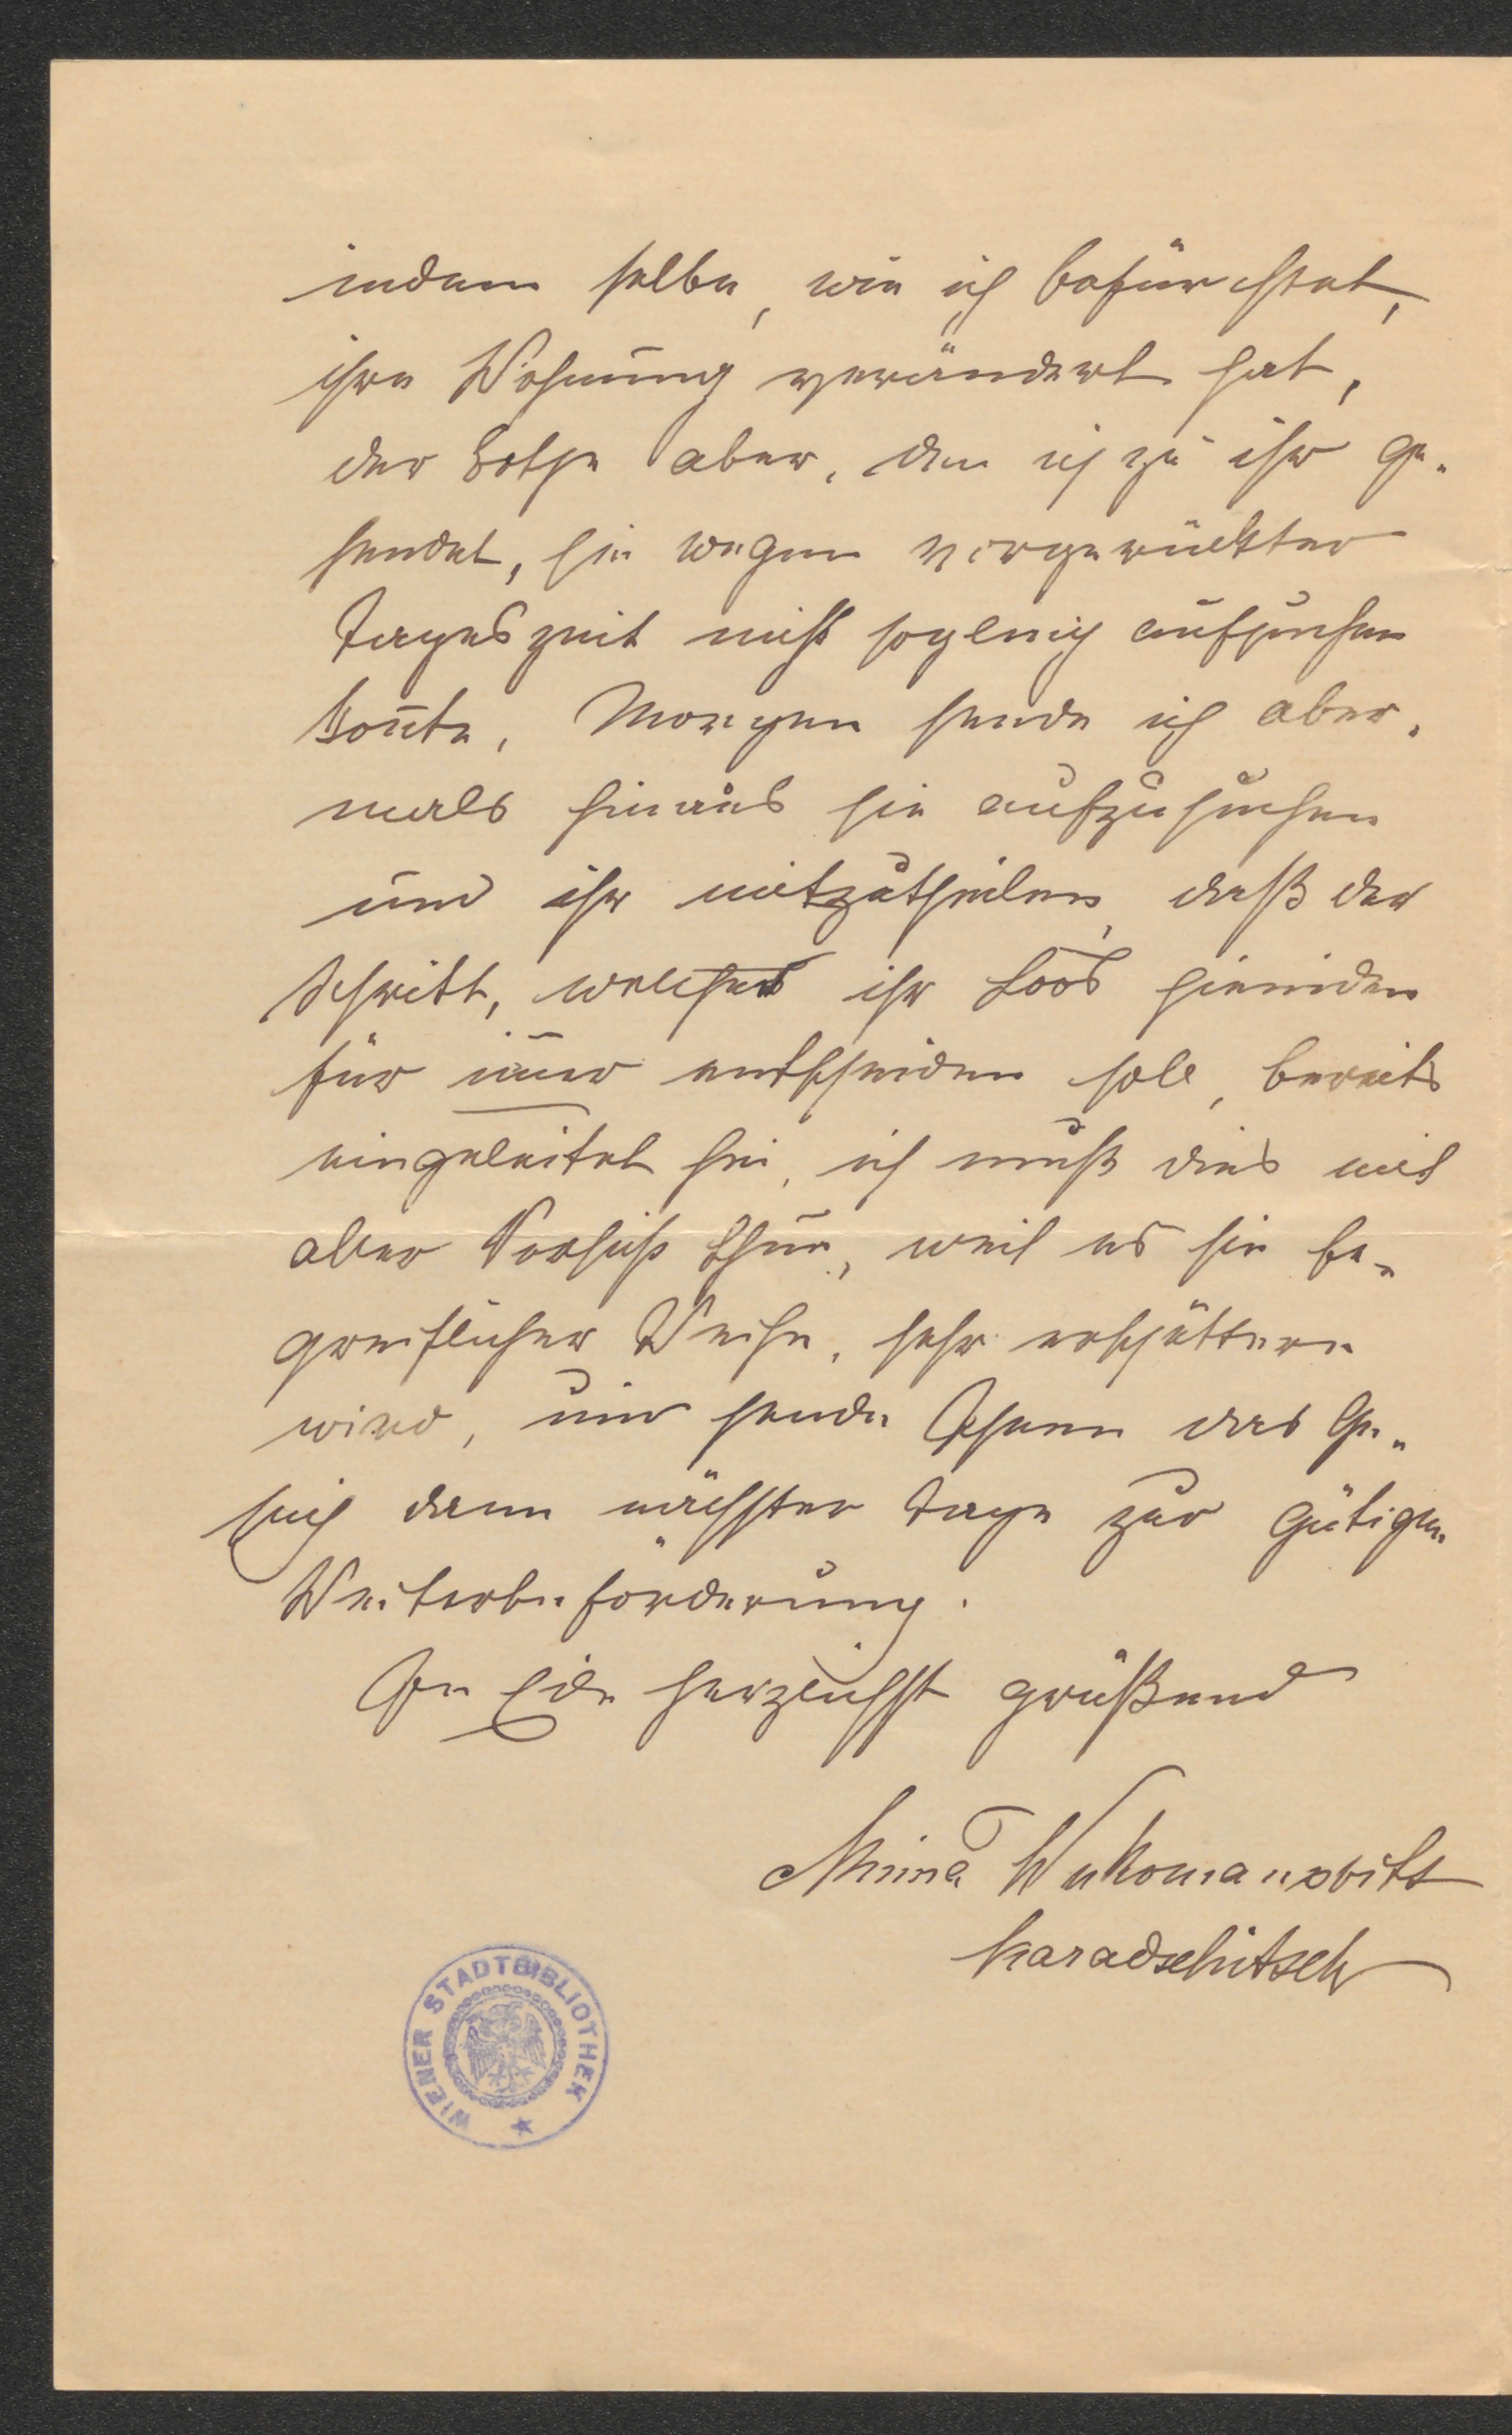 indem selbe, wie ich befürchtet,
ihre Wohnung verändert hat,
der Bothe aber, den ich zu ihr ge-
sendet, sie wegen vorgerückter
Tageszeit nicht sogleich aufsuchen
kon̄te, Morgen sende ich aber-
mals hinaus sie aufzusuchen
und ihr mitzutheilen, daß der
Schritt, welcher ihr Loos hienieden
für im̄er entscheiden soll, bereits
eingeleitet sei, ich muß dies mit
aller Vorsicht thun, weil es sie be-
greiflicher Weise, sehr erschüttern
wird, und sende Ihnen das Ge-
such dann nächster Tage zur gütigen
Weiterbeförderung.
herzlichst grüßend
Mina Wukomanovits
Karadschitsch
WIENER STADTBIBLIOTHEK